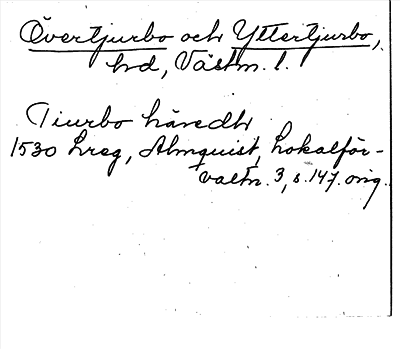 Övertjurbo och Yttertjurbo,
hd, Västm. l.
Tiurbo häredh
1530 hreg, Almquist, Lokalför-
valtn. 3, s. 147. orig.